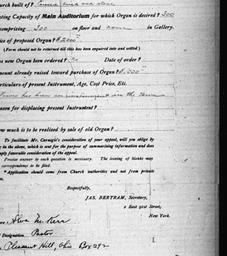 urch built of?
ting Capacity of Main Auditorium for which Organ is desired? 300
omprising 300 on floor and none in Gallery.
ice of proposed Organ?
(Form should not be returned till this has been enquired into and settled.)
as new Organ been ordered? No Date of order?
mount already raised toward purchase of Organ?
articulars of present Instrument, Age, Cost Price, Etc.
eason for displacing present Instrument?
ow much is to be realized by sale of old Organ?
To facilitate Mr. Carnegie's consideration of your appeal, will you oblige by
in the above, which is sent for the purpose of summarising information and does
ply favorable consideration of the appeal.
Precise answer to each question is necessary. The issuing of blanks may
correspondence to be required.
Application should come from Church authorities and not from private
Respectfully,
JAS. BERTRAM, Secretary,
2 East 91st Street,
New York.
Designation Pastor
Pleasant Hill, Ohio Box 292